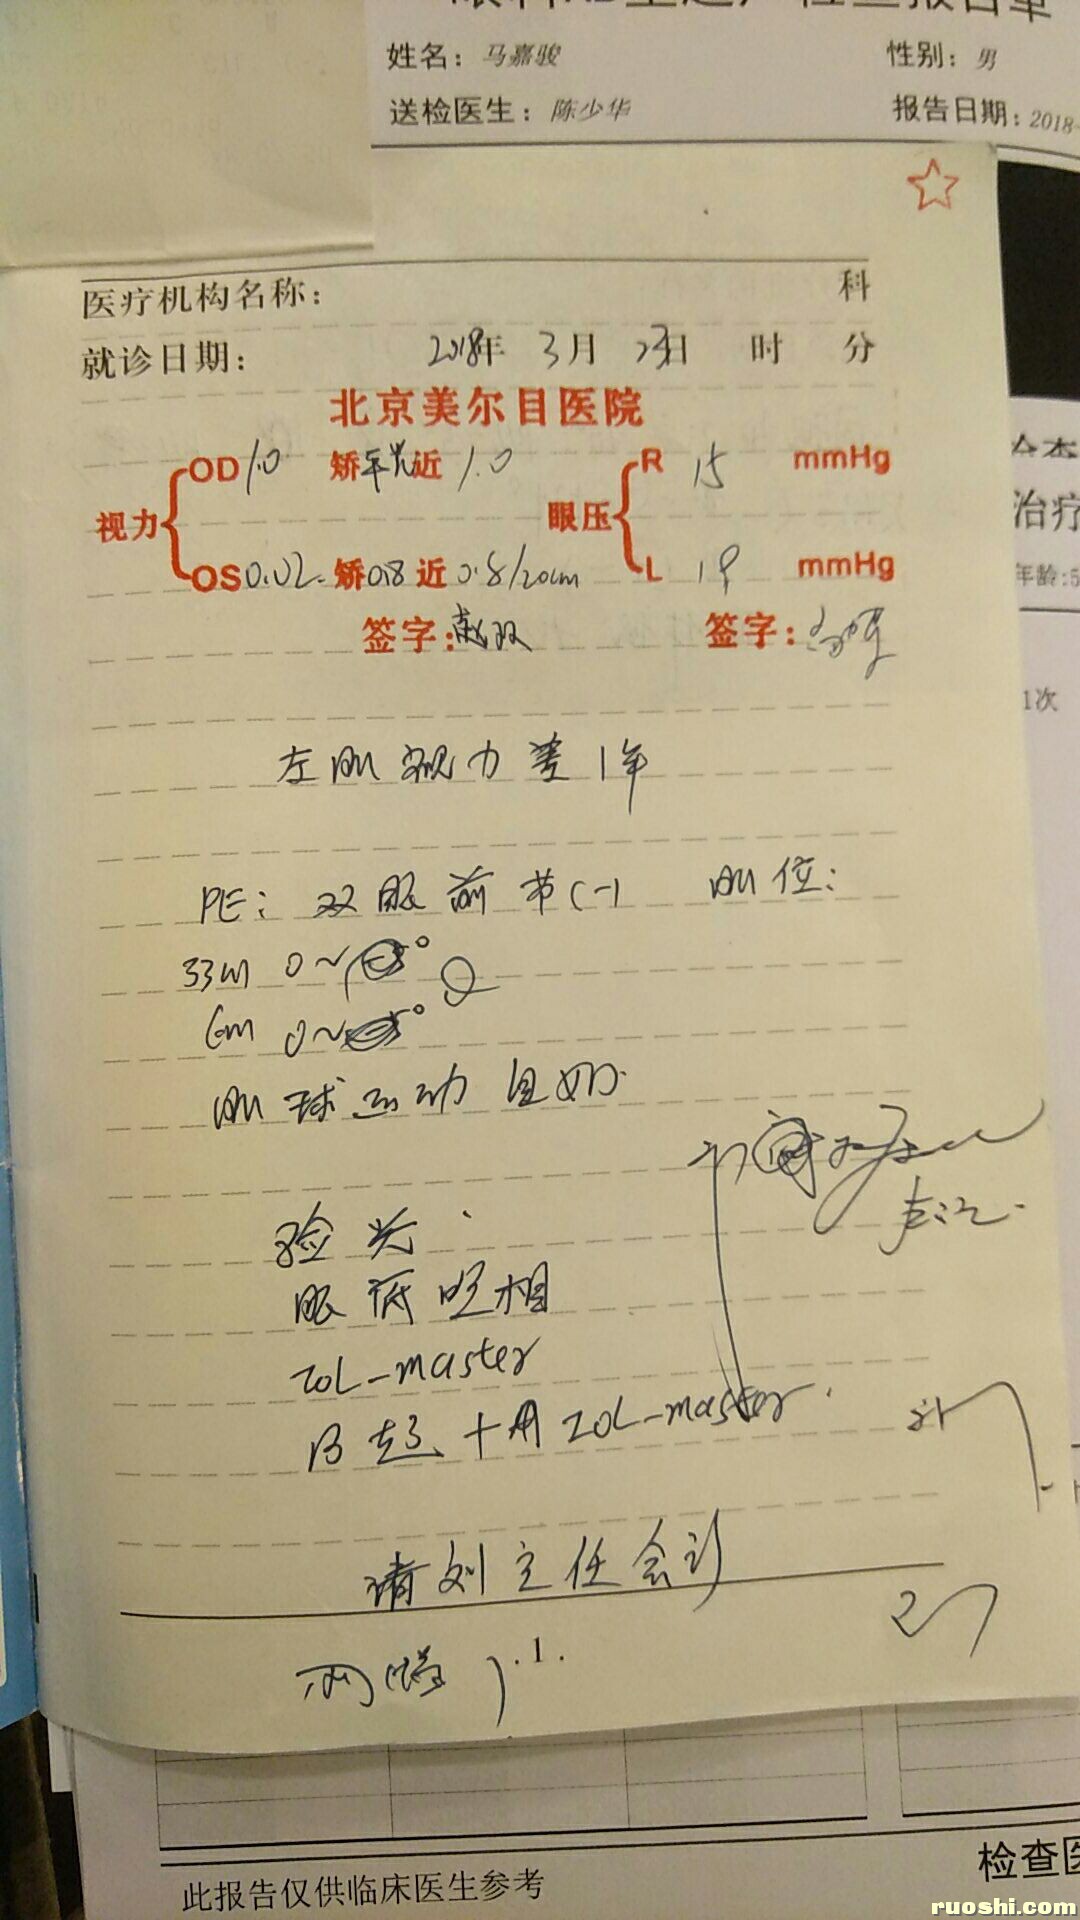 姓名：马嘉骏 性别：男
送检医生：陈少华 报告日期：2018-
医疗机构名称： 科
就诊日期： 2018年 3月 23日 时 分
北京美尔目医院
视力 OD 1.0 矫 平光 近 1.0 眼压 R 15 mmHg
OS 0.02 矫 0.8 近 0.8/20cm L 19 mmHg
签字： 签字：
左眼视力差1年
PE：双眼前节(-) 眼位：
33cm 0~ °
6m 0~ °
眼球运动自如
验光
眼底照相
IOL-master
B超 + 用IOL-master
请刘主任会诊
.1.
治疗
年龄:5
1次
检查医
此报告仅供临床医生参考
ruoshi.com